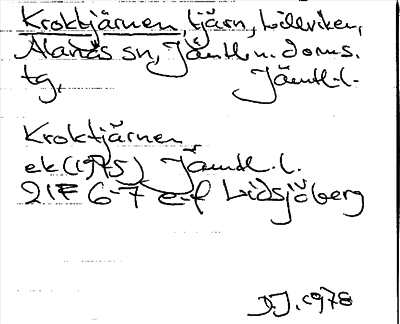 Kroktjärnen, tjärn, Lillviken,
Alanäs sn, Jämtl. n. doms.
tg, Jämtl. l.
Kroktjärnen
ek (1975) Jämtl. l.
21F 6-7 e-f Lidsjöberg
D.J. 1978